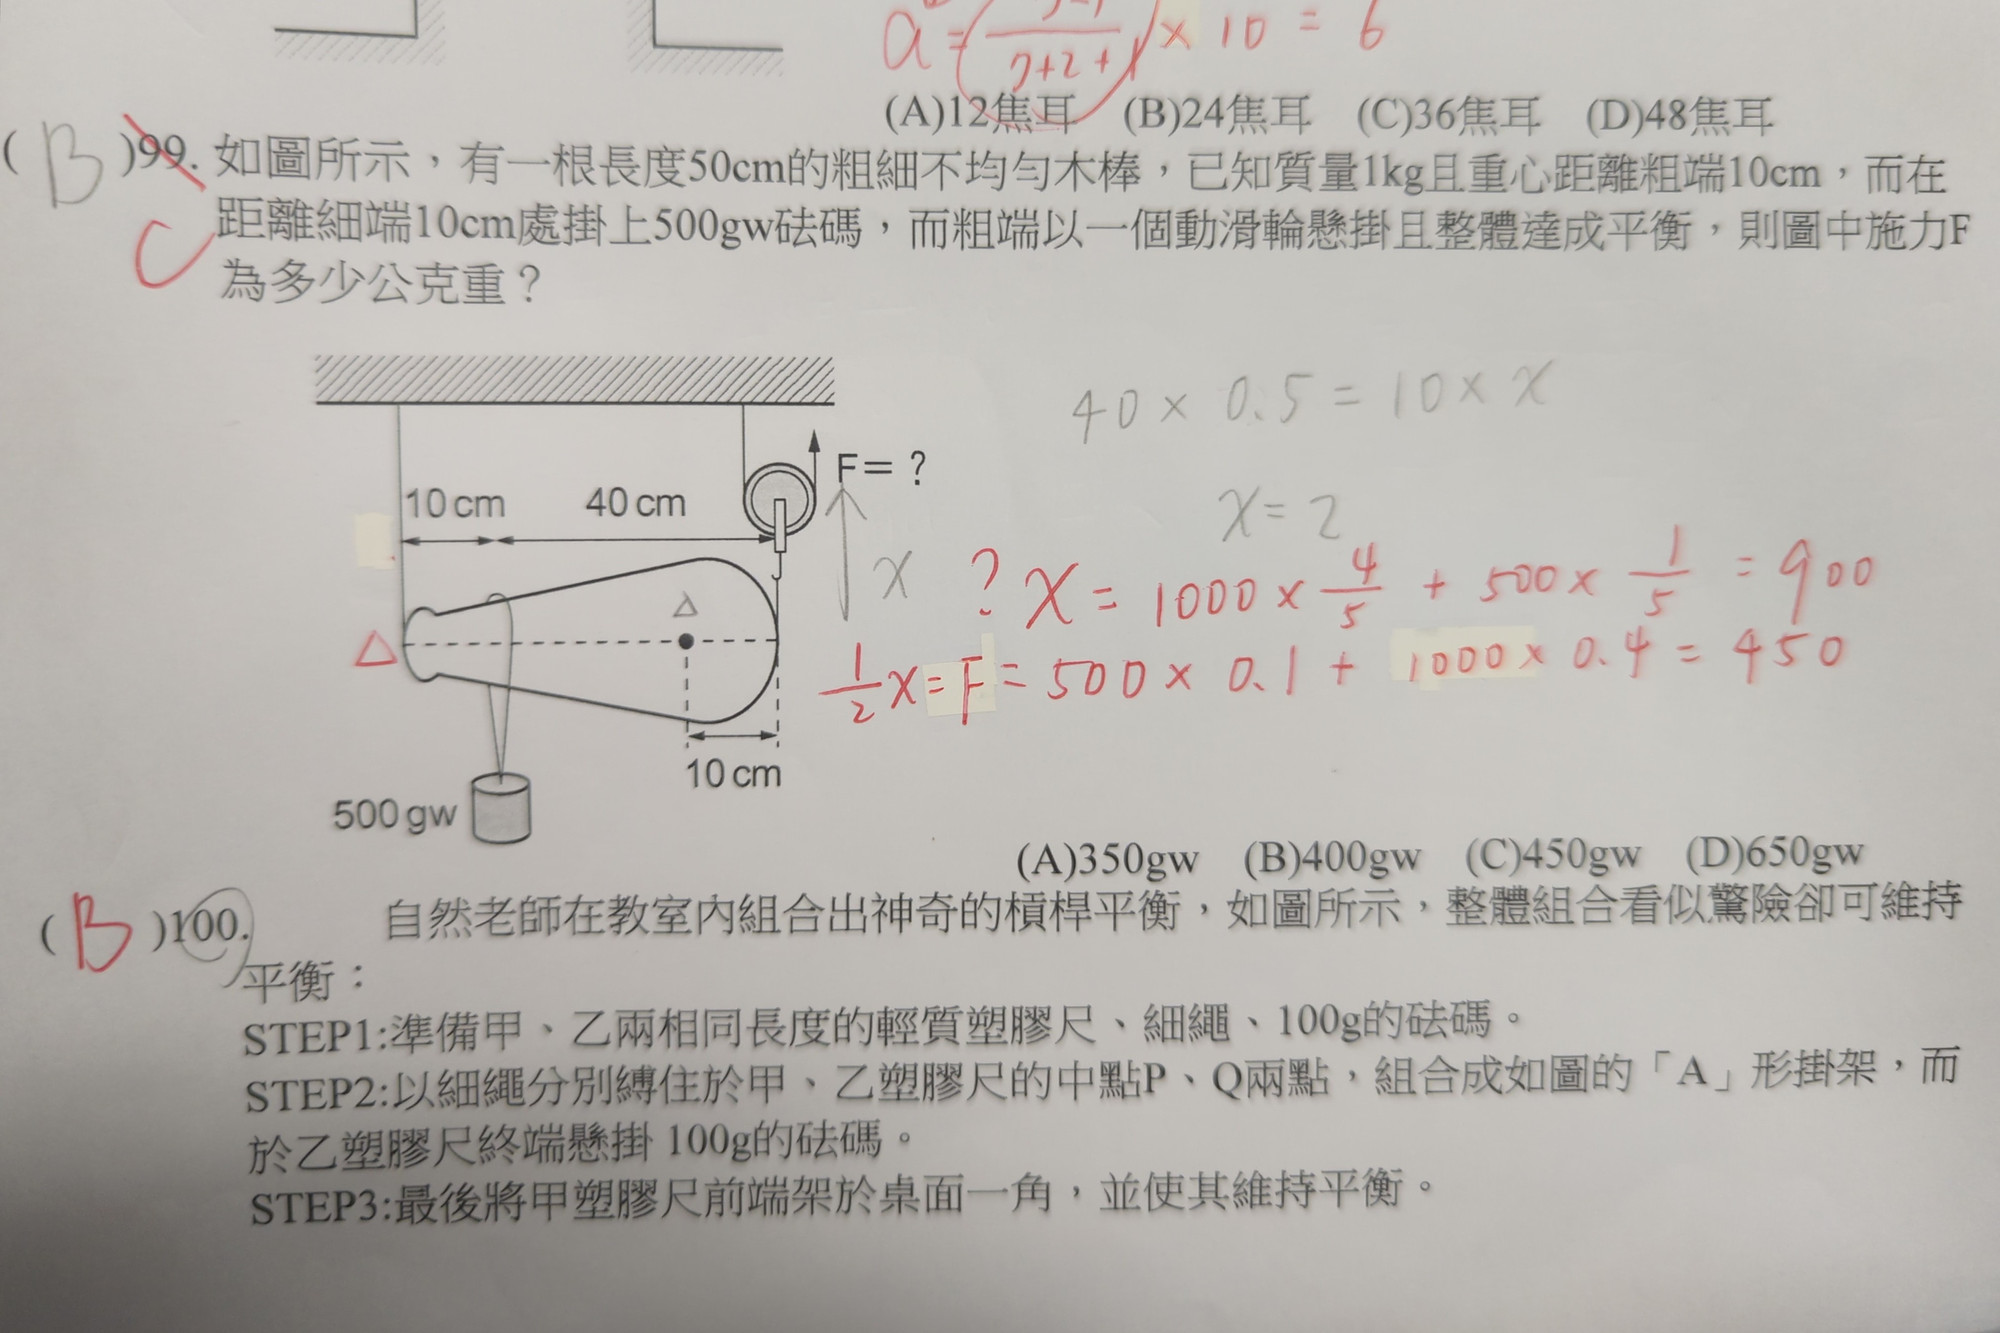 a = ( / 7+2+1 ) × 10 = 6
(A)12焦耳 (B)24焦耳 (C)36焦耳 (D)48焦耳
( B )99. 如圖所示，有一根長度50cm的粗細不均勻木棒，已知質量1kg且重心距離粗端10cm，而在
C 距離細端10cm處掛上500gw砝碼，而粗端以一個動滑輪懸掛且整體達成平衡，則圖中施力F
為多少公克重？
40 × 0.5 = 10 × x
F= ?
10 cm 40 cm
x = 2
x ? x = 1000 × 4/5 + 500 × 1/5 = 900
1/2 x = F = 500 × 0.1 + 1000 × 0.4 = 450
10 cm
500 gw
(A)350gw (B)400gw (C)450gw (D)650gw
( B )100. 自然老師在教室內組合出神奇的槓桿平衡，如圖所示，整體組合看似驚險卻可維持
平衡：
STEP1:準備甲、乙兩相同長度的輕質塑膠尺、細繩、100g的砝碼。
STEP2:以細繩分別縛住於甲、乙塑膠尺的中點P、Q兩點，組合成如圖的「A」形掛架，而
於乙塑膠尺終端懸掛 100g的砝碼。
STEP3:最後將甲塑膠尺前端架於桌面一角，並使其維持平衡。